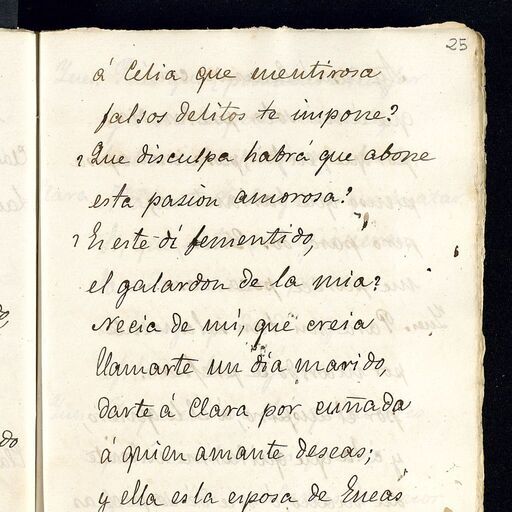 25
á Celia que mentirosa
falsos delitos te impone?
¿Que disculpa habrá que abone
esta pasion amorosa?
¿Es este dí fementido,
el galardon de la mia?
Necia de mí, que creia
llamarte un dia marido,
darte á Clara por cuñada
á quien amante deseas;
y ella es la esposa de Eneas